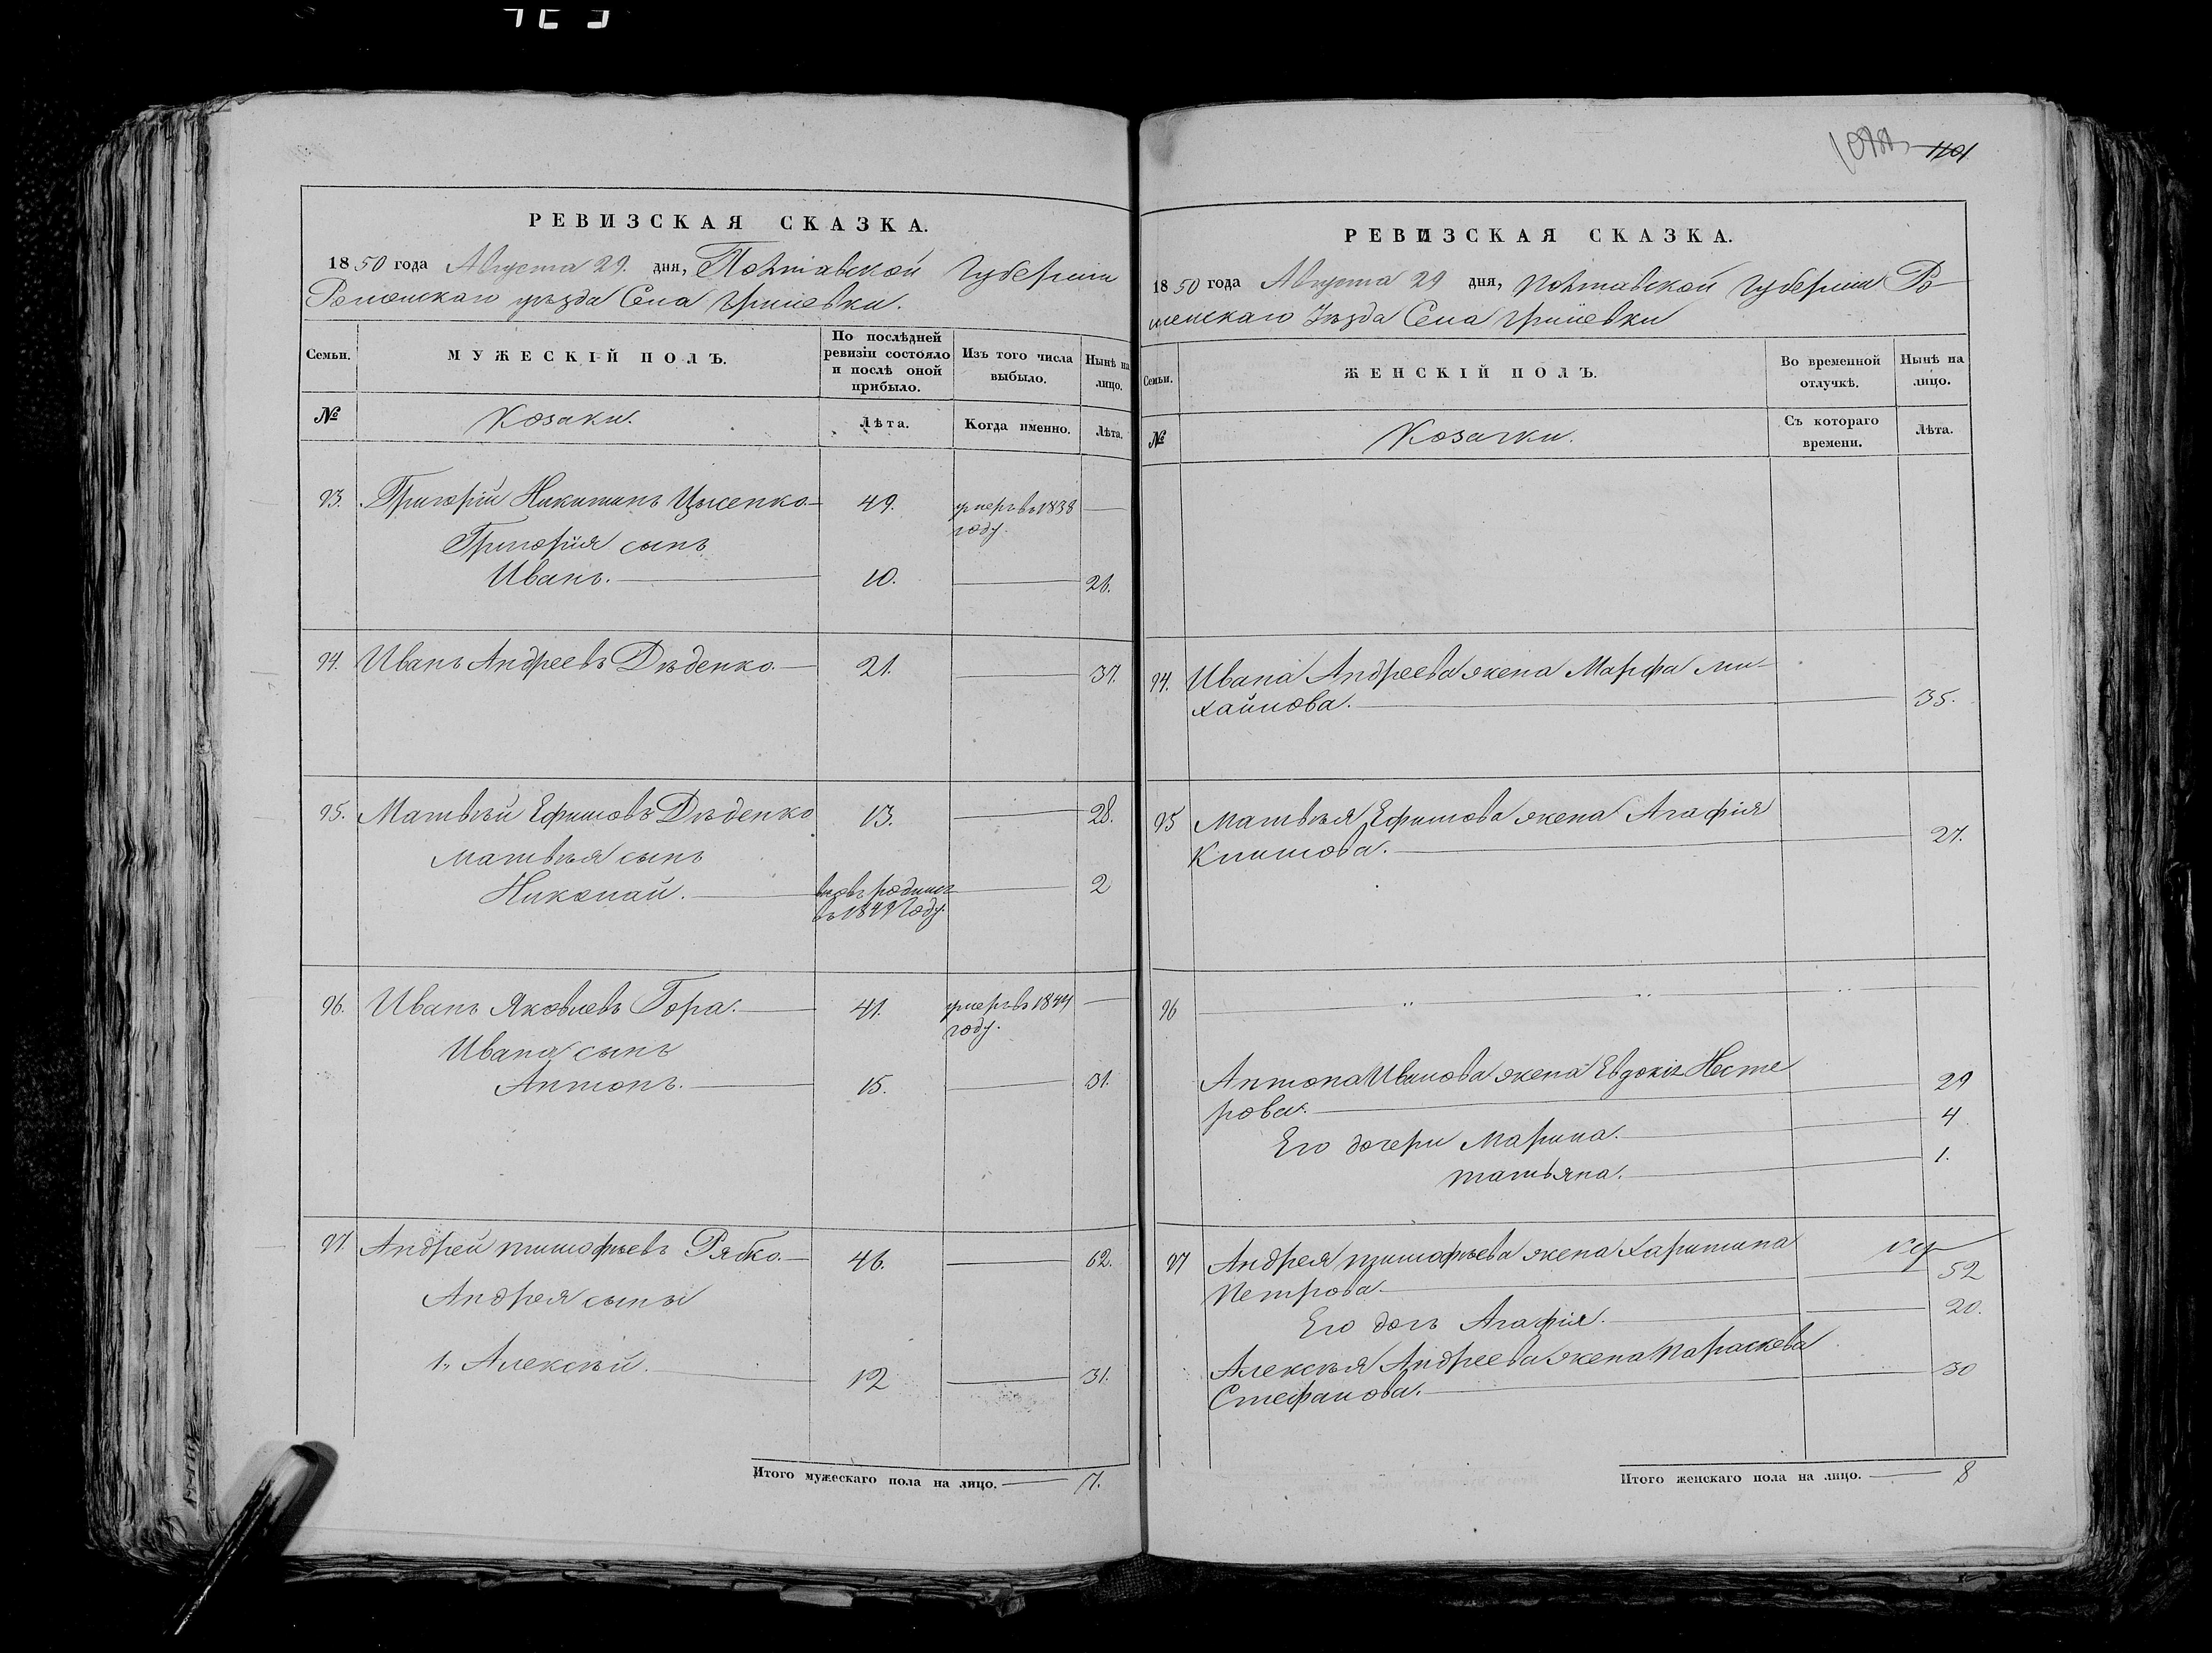 РЕВИЗСКАЯ СКАЗКА.
1850 года Августа 29. дня, Полтавской Губерніи
Роменскаго уѣзда Села
Семьи.
МУЖЕСКІЙ ПОЛЪ.
По послѣдней
ревизіи состояло
и послѣ оной
прибыло.
Изъ того числа
выбыло.
Нынѣ на
лицо.
№
Козаки.
Лѣта.
Когда именно.
Лѣта.
93. Григорій Никитинъ 49. умеръ въ 1838 —
году.
Григорія сынъ
Иванъ. — 10. — 26.
94. Иванъ Андреевъ Дѣденко — 21. — 37.
95. Матвѣй Ефимовъ Дѣденко 13. — 28.
Матвѣя сынъ
Николай. — вновь родился — 2
въ 1849 году.
96. Иванъ Яковлевъ Гора. — 41. умеръ въ 1844 —
году.
Ивана сынъ
Антонъ. — 15. — 31.
97 Андрей Тимофѣевъ Рябко. — 46. — 62.
Андрея сыны
1, Алексѣй. — 12 — 31.
Итого мужескаго пола на лицо. — 7.
1101
РЕВИЗСКАЯ СКАЗКА.
1850 года Августа 29 дня, Полтавской Губерніи Ро-
менскаго Уѣзда Села
Семьи.
ЖЕНСКІЙ ПОЛЪ.
Во временной
отлучкѣ.
Нынѣ на
лицо.
№
Козачки.
Съ котораго
времени.
Лѣта.
94. Ивана Андреева жена Марфа Ми-
хайлова. — 35.
95 Матвѣя Ефимова жена Агафія
Климова. — 27.
96 " " "
Антона Иванова жена Евдокія Несте
рова. — 29
Его дочери Марина. — 4
Татьяна. — 1.
97 Андрея Тимофѣева жена Харитина
Петрова. — 52
Его дочь Агафія. — 20.
Алексѣя Андреева жена Параскева
Стефанова. — 30
Итого женскаго пола на лицо. — 8